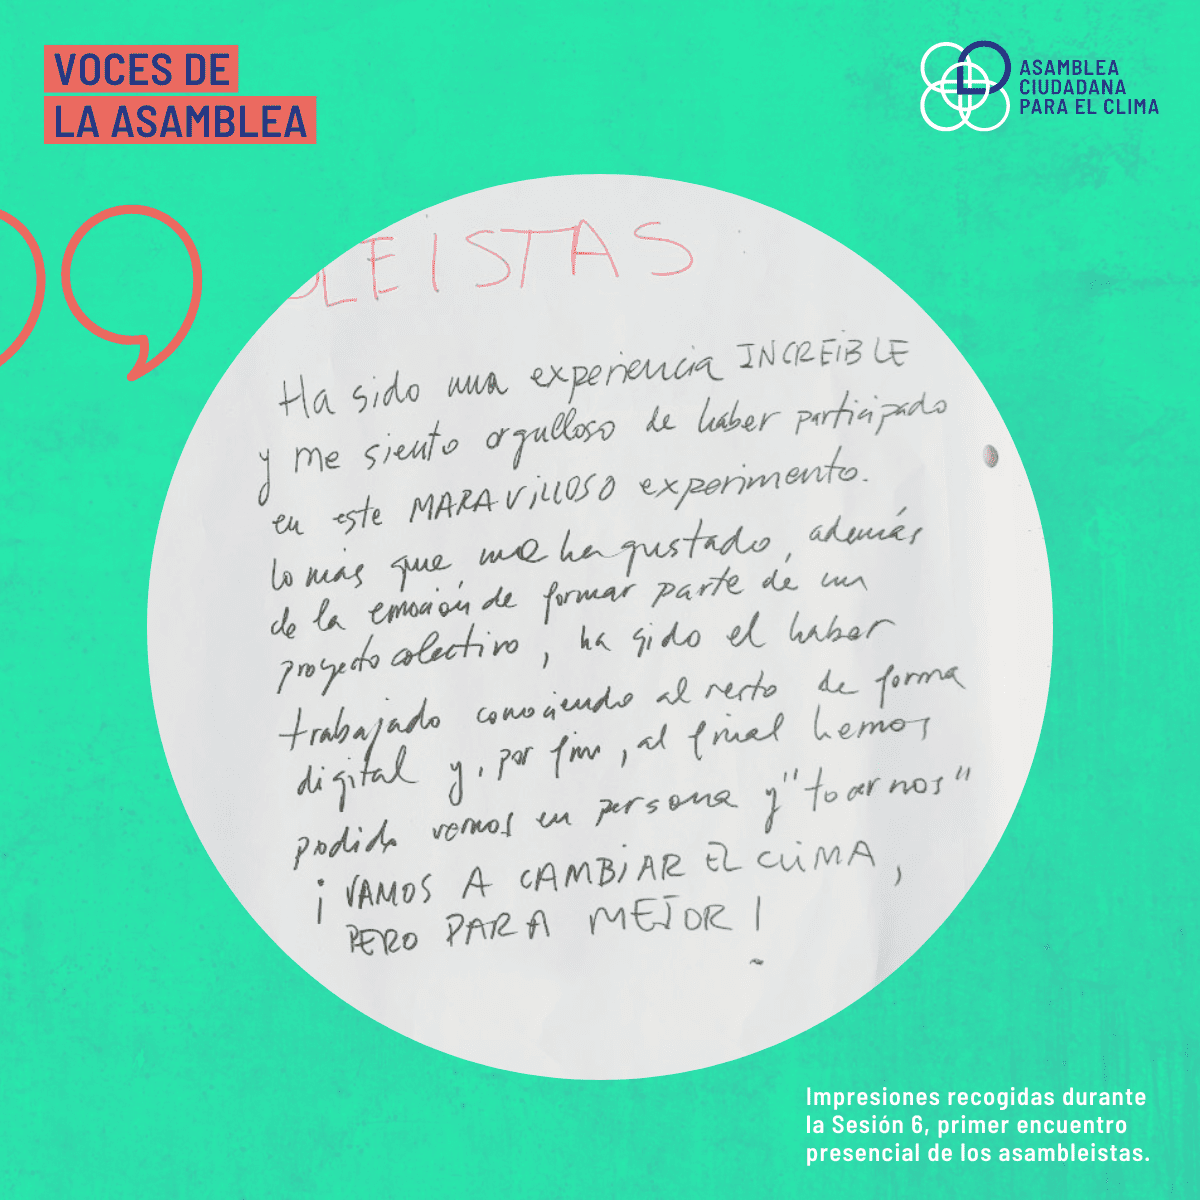 VOCES DE
LA ASAMBLEA
ASAMBLEA
CIUDADANA
PARA EL CLIMA
LEISTAS
Ha sido una experiencia INCREIBLE
y me siento orgulloso de haber participado
en este MARAVILLOSO experimento.
Lo más que me ha gustado, además
de la emoción de formar parte de un
proyecto colectivo, ha sido el haber
trabajado conociendo al resto de forma
digital y, por fin, al final hemos
podido vernos en persona y "tocarnos"
¡VAMOS A CAMBIAR EL CLIMA,
PERO PARA MEJOR!
Impresiones recogidas durante
la Sesión 6, primer encuentro
presencial de los asambleistas.